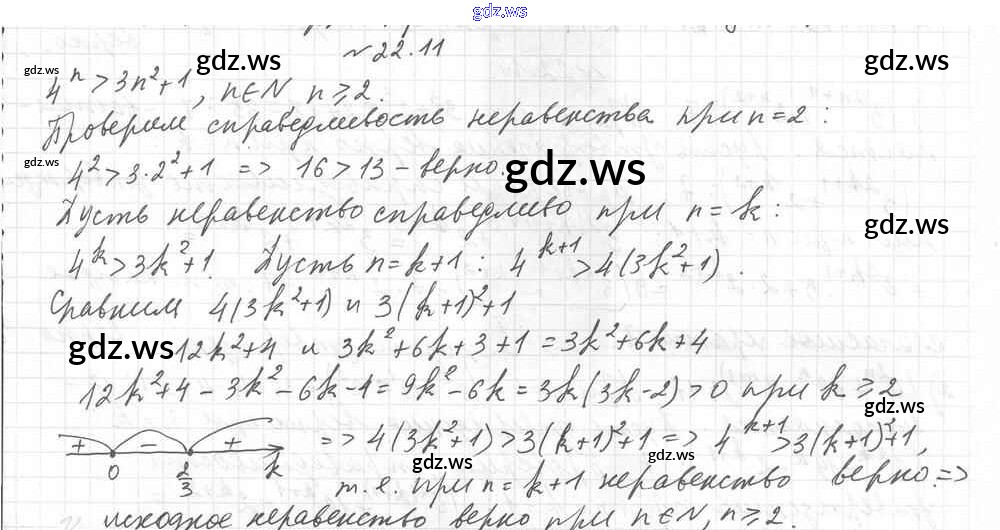 gdz.ws
№22.11
gdz.ws gdz.ws gdz.ws
4ⁿ > 3n²+1, n∈N n⩾2.
Проверим справедливость неравенства при n=2:
gdz.ws 4² > 3·2²+1 => 16 > 13 – верно. gdz.ws
Пусть неравенство справедливо при n=k: gdz.ws
4ᵏ > 3k²+1. Пусть n=k+1: 4ᵏ⁺¹ > 4(3k²+1).
Сравним 4(3k²+1) и 3(k+1)²+1
gdz.ws 12k²+4 и 3k²+6k+3+1 = 3k²+6k+4
12k²+4-3k²-6k-4 = 9k²-6k = 3k(3k-2) > 0 при k⩾2
gdz.ws
+ – + => 4(3k²+1) > 3(k+1)²+1 => 4ᵏ⁺¹ > 3(k+1)²+1,
0 2/3 k gdz.ws gdz.ws
т.е. при n=k+1 неравенство верно. =>
исходное неравенство верно при n∈N, n⩾2.